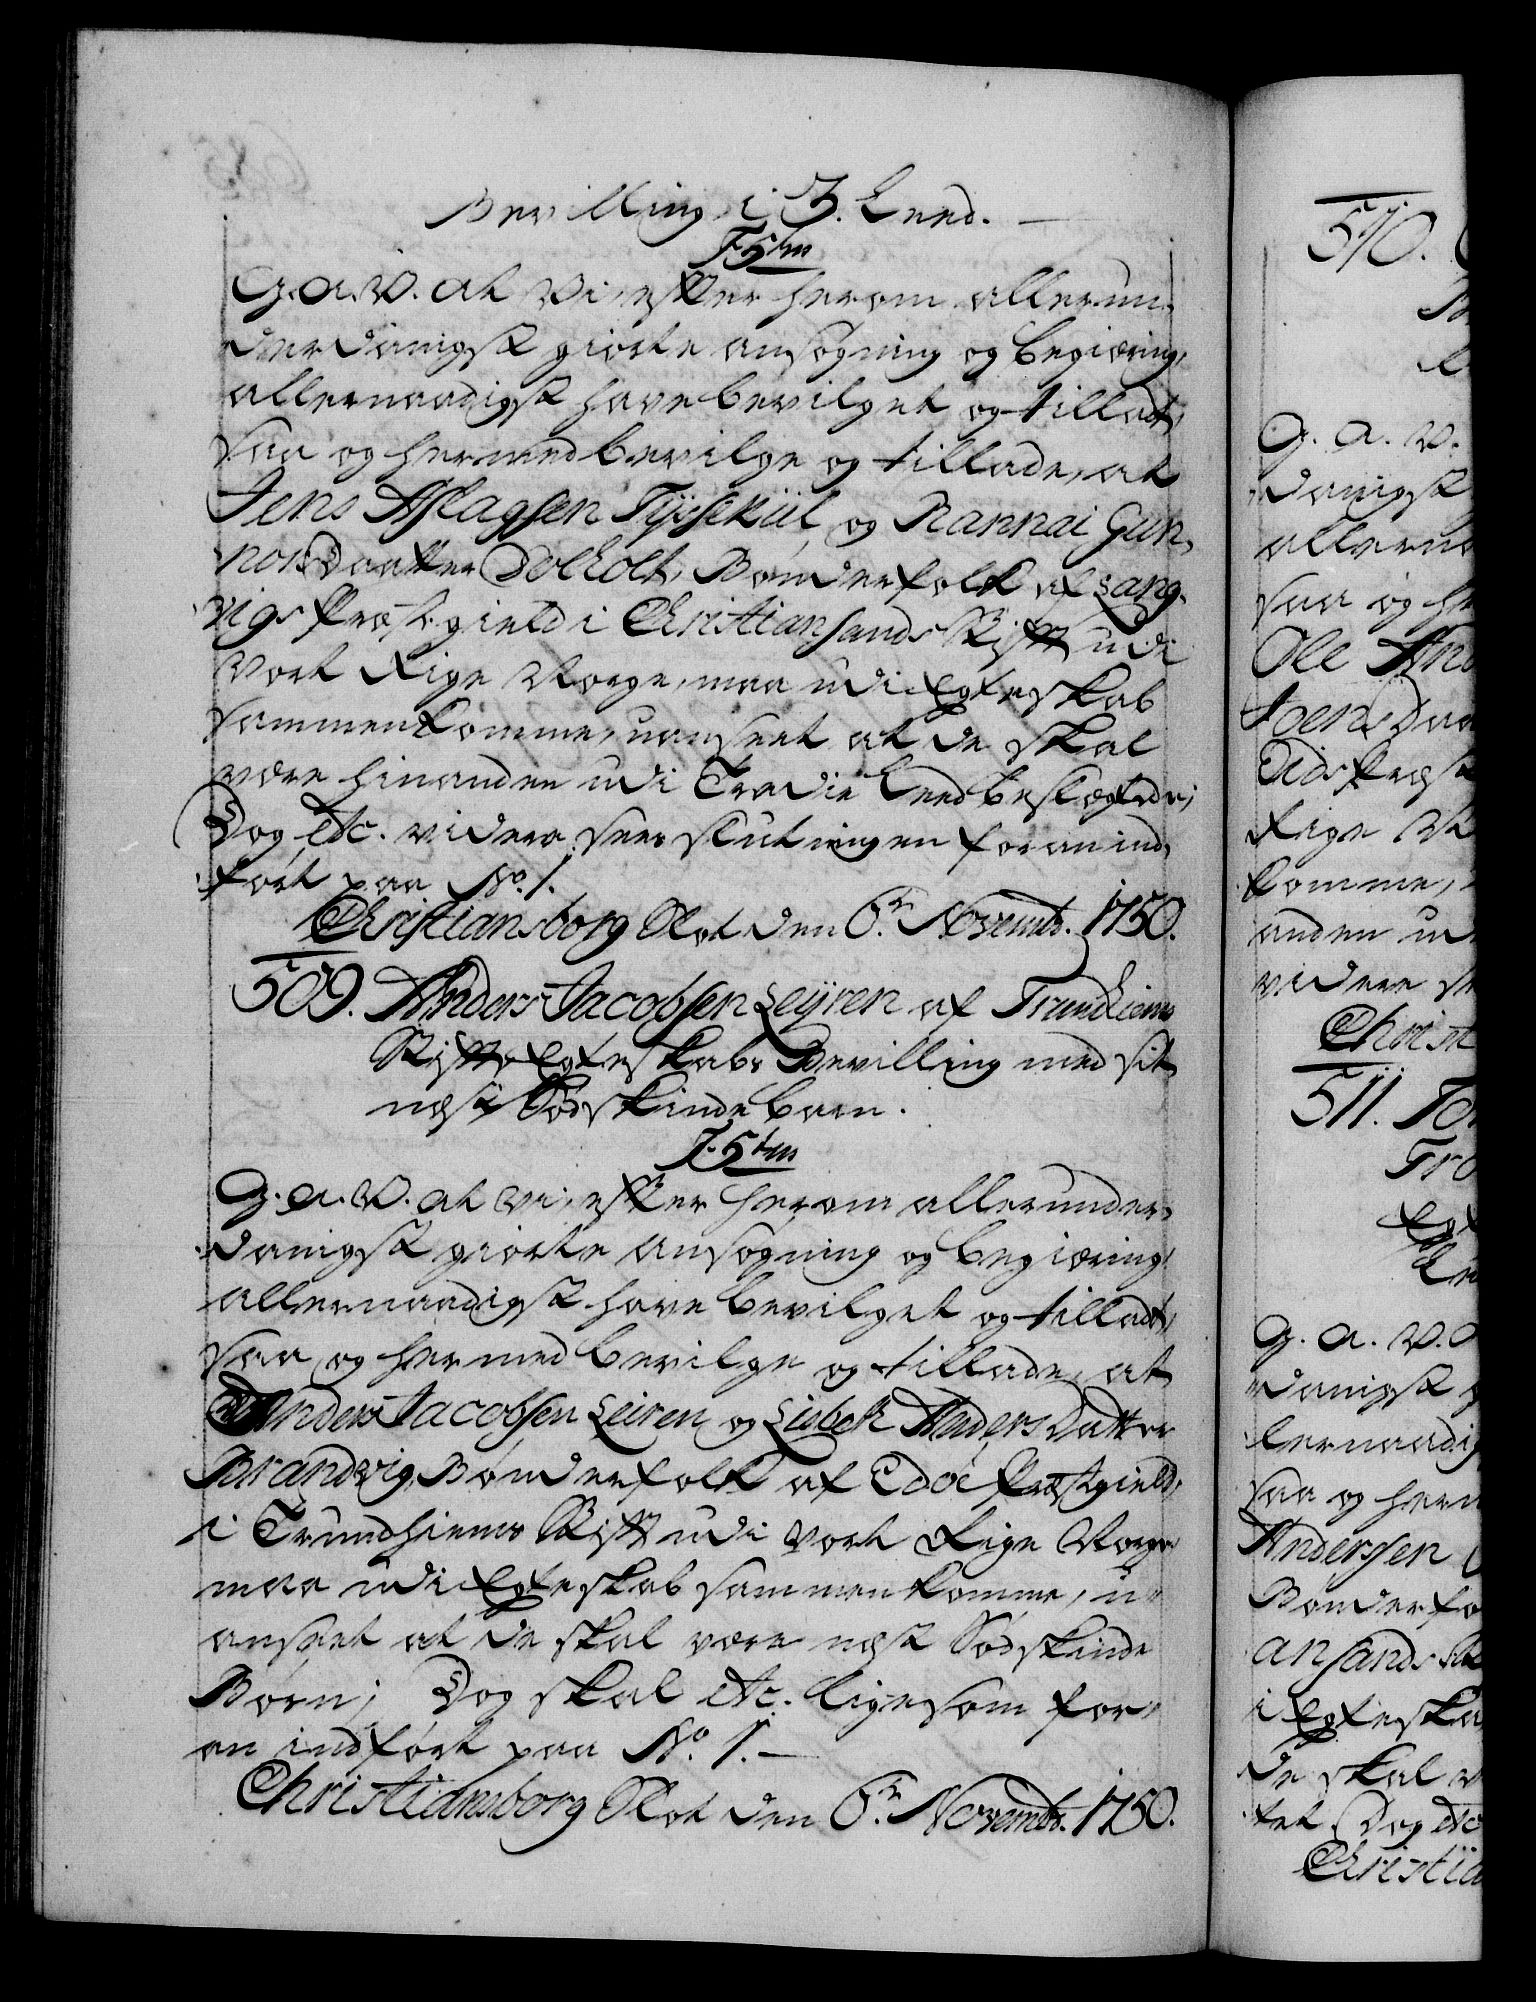 Bevilling i 3. Leed.
F. 5tus
G. A. V. at Vi, efter herom allerun,
derdanigst giorte ansøgning og begiæring,
allernaadigst have bevilget og tilladt,
saa og hermed bevilge og tillade, at
Jens Aslagsen Tysseküil og Rannai Gun,
nors Daatter Dolholt, Bønderfolk af Lang-
vigs Præstegield i Christiansands Stift udi
Vort Rige Norge, maa udi Egteskab
sammenkomme, uanseet at de skal
være hinanden udi Tredie Leed beslægtede;
Dog etc. videre sees slutningen foran ind,
ført paa No. 1.
Christiansborg Slot den 6te Novemb. 1750.
509. Anders Jacobsen Leyren af Trundhiems
Stift Egteskabs Bevilling med sit
næst Sødskindebarn.
F. 5tus
G. A. V. at Vi, efter herom allerunder,
danigst giorte ansøgning og begiæring,
allernaadigst have bevilget og tilladt,
saa og hermed bevilge og tillade, at
Anders Jacobsen Leiren og Lisbeth Anders Datter
Brandvig, Bønderfolk af Edøe Præstegield,
i Trundhiems Stift udi Vort Rige Norge
maa udi Egteskab sammenkomme, u-
anseet at de skal være næst Sødskinde
Børn; Dog skal etc. ligesom for-
an indført paa No. 1.
Christiansborg Slot den 6te Novemb. 1750.
510.
G. A. V.
danigst
allerna
saa og he
Ole And
Joens Daa
Eids Præst
Rige N
komme,
anden ud
videre se
Christ
511.
G. A. V. A
danigst g
lernaadig
saa og herm
Anderssen
Bønderfo
ansands St
i Egteska
de skal v
tet. Dog etc
Christia